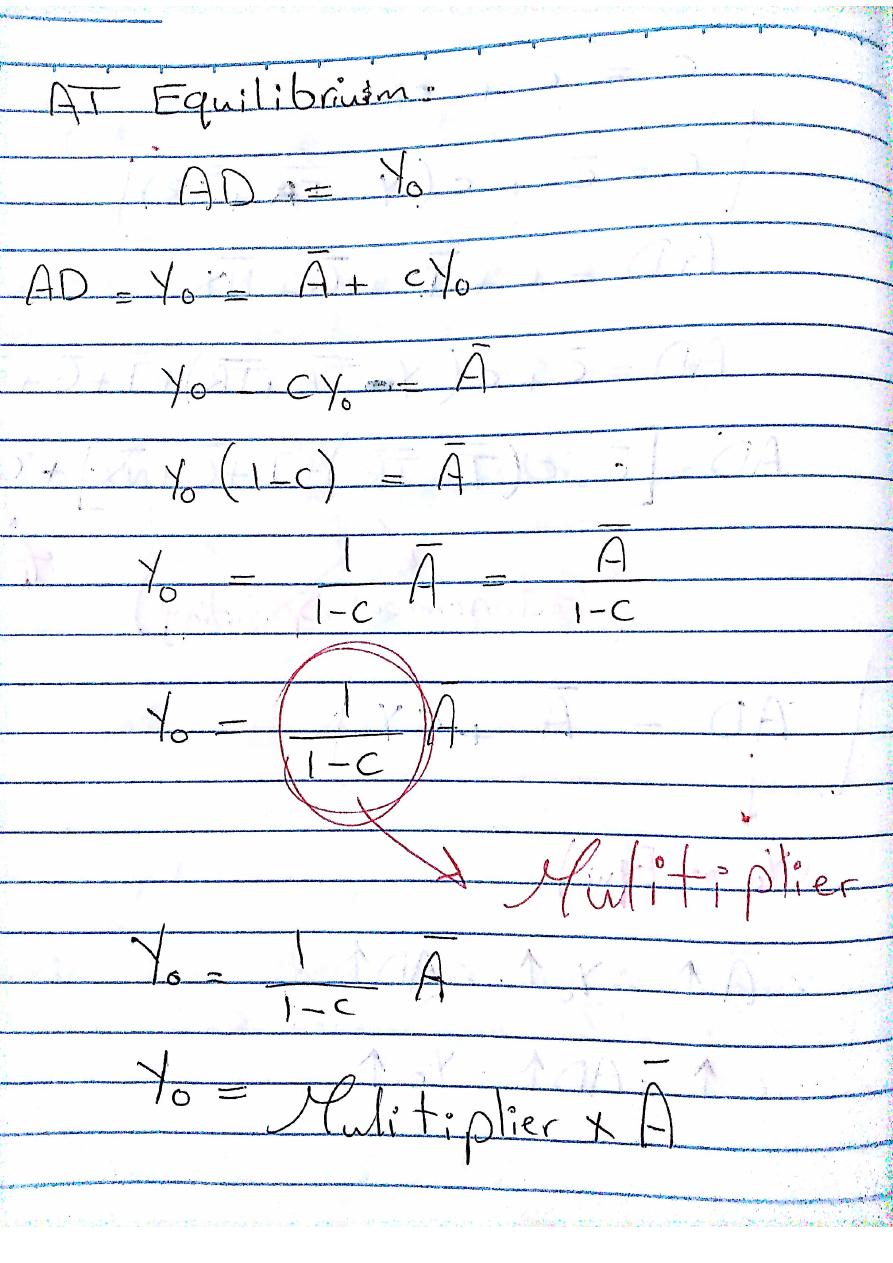 AT Equilibrium:
AD = Y₀
AD = Y₀ = Ā + cY₀
Y₀ - cY₀ = Ā
Y₀ (1-c) = Ā
Y₀ = 1/(1-c) Ā = Ā/(1-c)
Y₀ = 1/(1-c) Ā
Mulitiplier
Y₀ = 1/(1-c) Ā
Y₀ = Mulitiplier x Ā